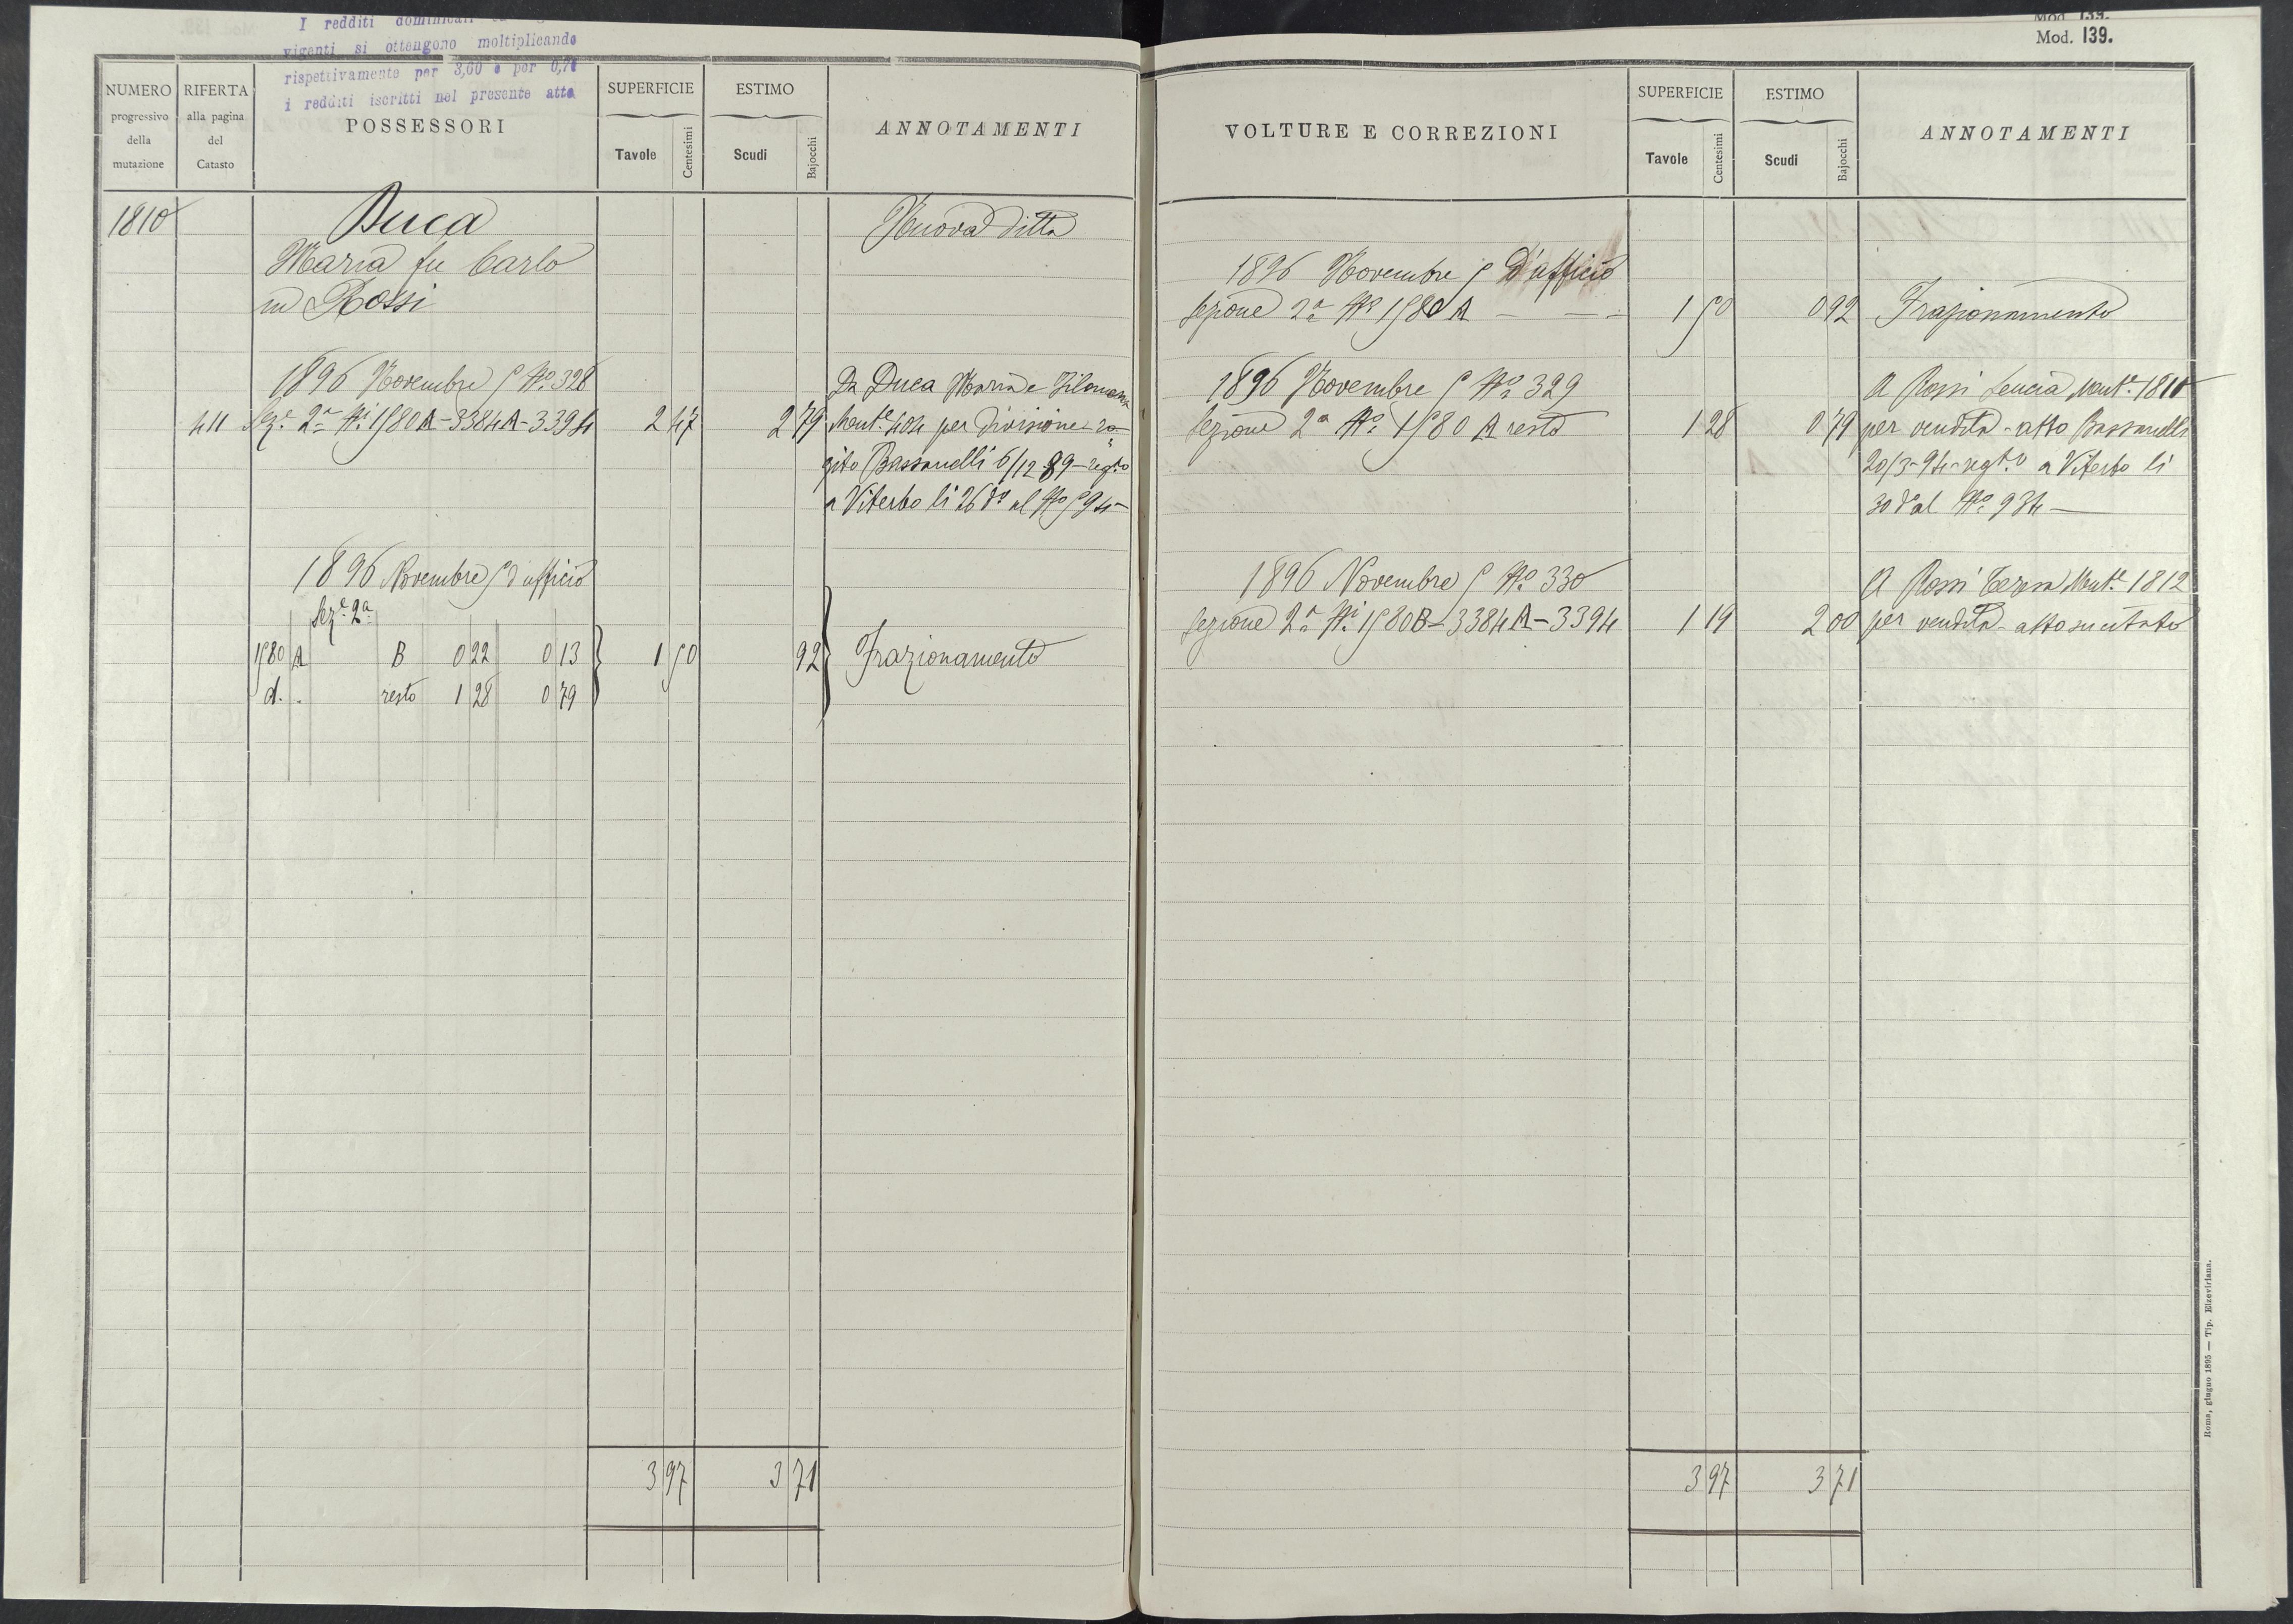 I redditi dominicali
vigenti si ottengono moltiplicando
rispettivamente per 3,60 e per 0,71
i redditi iscritti nel presente atto
NUMERO
progressivo
della
mutazione
RIFERTA
alla pagina
del
Catasto
POSSESSORI
SUPERFICIE
Tavole
Centesimi
ESTIMO
Scudi
Bajocchi
ANNOTAMENTI
1810
Duca
Nuova ditta
Maria fu Carlo
in Rossi
1896 Novembre 5 No 328
411 Sez.e 2a Ni 1580 A-3384A-3394 2 47 2 79
Da Duca Maria e Filomena
Mont.e 404 per divisione ro=
gito Bassanelli 6/12 89 - regto
a Viterbo li 26 do al No 594-
1896 Novembre 5 d'ufficio
Sez.e 2a
1580 A B 0 22 0 13
d. . resto 1 28 0 79
1 50 92 Frazionamento
3 97 3 71
Mod. 139.
Mod. 139.
VOLTURE E CORREZIONI
SUPERFICIE
Tavole
Centesimi
ESTIMO
Scudi
Bajocchi
ANNOTAMENTI
1896 Novembre 5 D'ufficio
Sezione 2a No 1580 A - - - 1 50 0 92 Frazionamento
1896 Novembre 5 No 329
Sezione 2a No 1580 A resto 1 28 0 79
A Rossi Lucia Mont.e 1811
per vendita - atto Bassanelli
20/3-94-regt.o a Viterbo li
30 do al No 934 -
1896 Novembre 5 No 330
Sezione 2a Ni 1580B-3384A-3394 1 19 2 00
A Rossi Teresa Mont.e 1812
per vendita - atto sucitato
3 97 3 71
Roma, giugno 1895 — Tip. Elzeviriana.